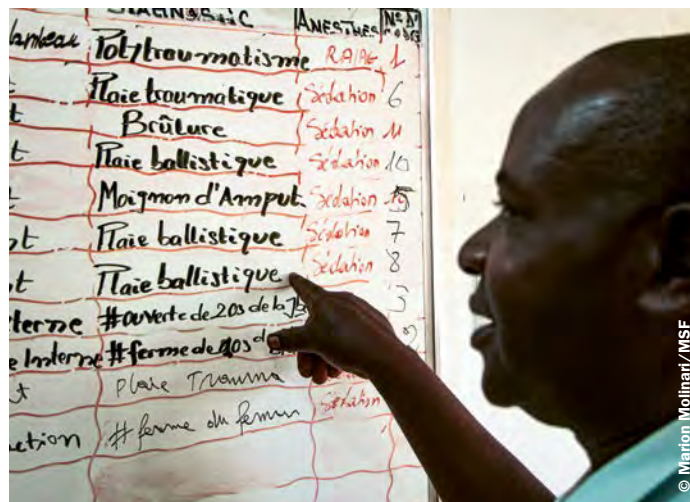 DIAGNOSTIC ANESTHES N°D'
Polytraumatisme RA/AG 1
Plaie traumatique Sédation 6
Brûlure Sédation 11
Plaie ballistique Sédation 10
Moignon d'Amput. Sédation
Plaie ballistique Sédation 7
Plaie ballistique Sédation 8
terne #ouverte de 2os de la 3
e Interne #ferme de os d
t Plaie Trauma
ction #ferme du femur Sédation
© Marion Molinari/MSF